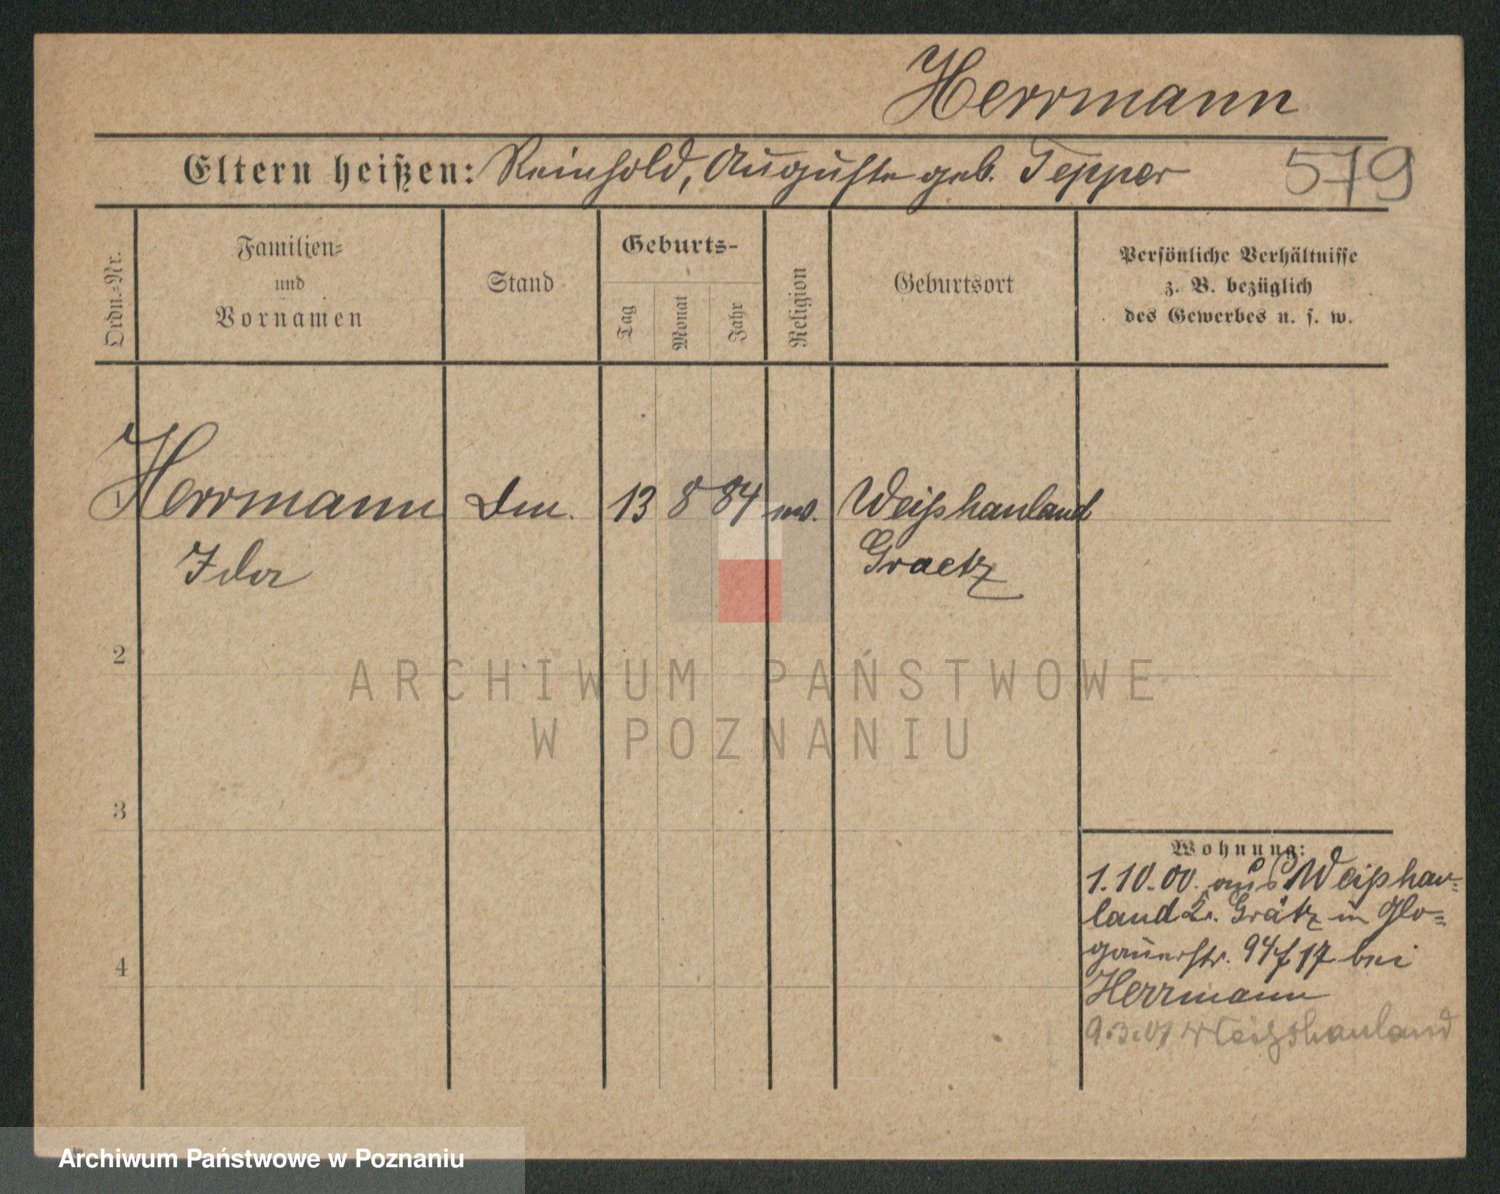 Herrmann
Eltern heißen: Reinhold, Auguste geb. Tepper 579
Ordn.-Nr.
Familien-
und
Vornamen
Stand
Geburts-
Tag
Monat
Jahr
Religion
Geburtsort
Persönliche Verhältnisse
z. B. bezüglich
des Gewerbes u. s. w.
Herrmann 13 8 84 Weißhauland
Ida Graetz
2
3
4
Wohnung:
1.10.00. aus Weißhau=
land Grätz in Glo=
gauerstr. 94 bei
Herrmann
9.3.01 Weißhauland
ARCHIWUM PAŃSTWOWE
W POZNANIU
Archiwum Państwowe w Poznaniu